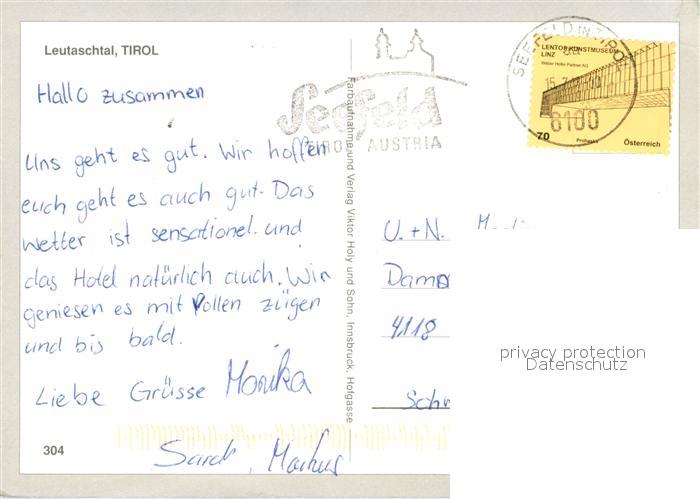 Leutaschtal, TIROL
Hallo zusammen
Uns geht es gut. Wir hoffen
euch geht es auch gut. Das
Wetter ist sensationel. und
das Hotel natürlich auch. Wir
geniesen es mit Vollen zügen
und bis bald.
Liebe Grüsse Monika
Sarah, Markus
304
Farbaufnahme und Verlag Viktor Holy und Sohn, Innsbruck, Hofgasse
Seefeld
TIROL AUSTRIA
SEEFELD IN TIROL
6100
LENTOS KUNSTMUSEUM
LINZ
Weber Hofer Partner AG
70
Österreich
U. + N.
4118
privacy protection
Datenschutz